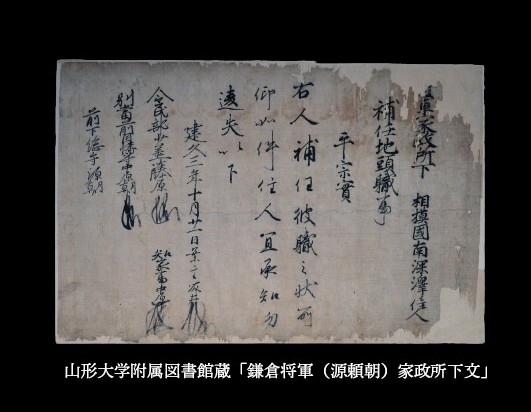 将軍家政所下　相模國南深澤住人
補任地頭職事
平宗實
右人補任彼職之状所
仰如件住人宜承知勿
違失以下
建久三年十月廿一日案主藤井
令民部少丞藤原　知家事中原
別當前因幡守中原朝臣
前下総守源朝臣
山形大学附属図書館蔵「鎌倉将軍（源頼朝）家政所下文」